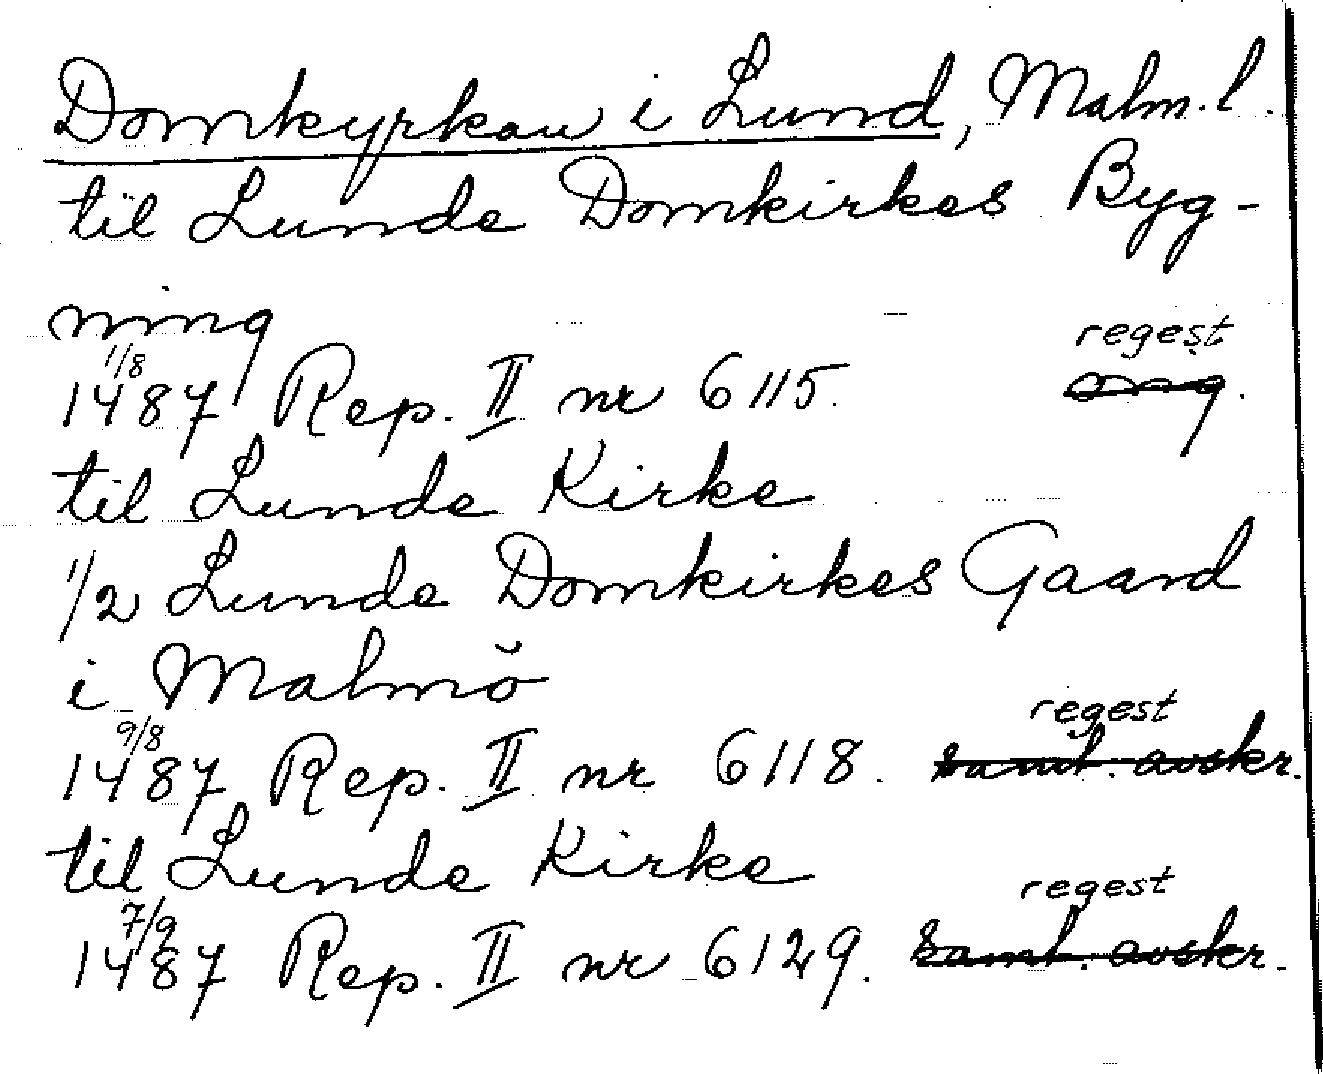 Domkyrkan i Lund, Malm. l.
til Lunde Domkirkes Byg-
ning
regest
1/8
1487 Rep. II nr 6115. orig.
til Lunde Kirke
1/2 Lunde Domkirkes Gaard
i Malmö
regest
9/8
1487 Rep. II nr 6118. samt. avskr.
til Lunde Kirke
regest
7/9
1487 Rep. II nr 6129. samt. avskr.